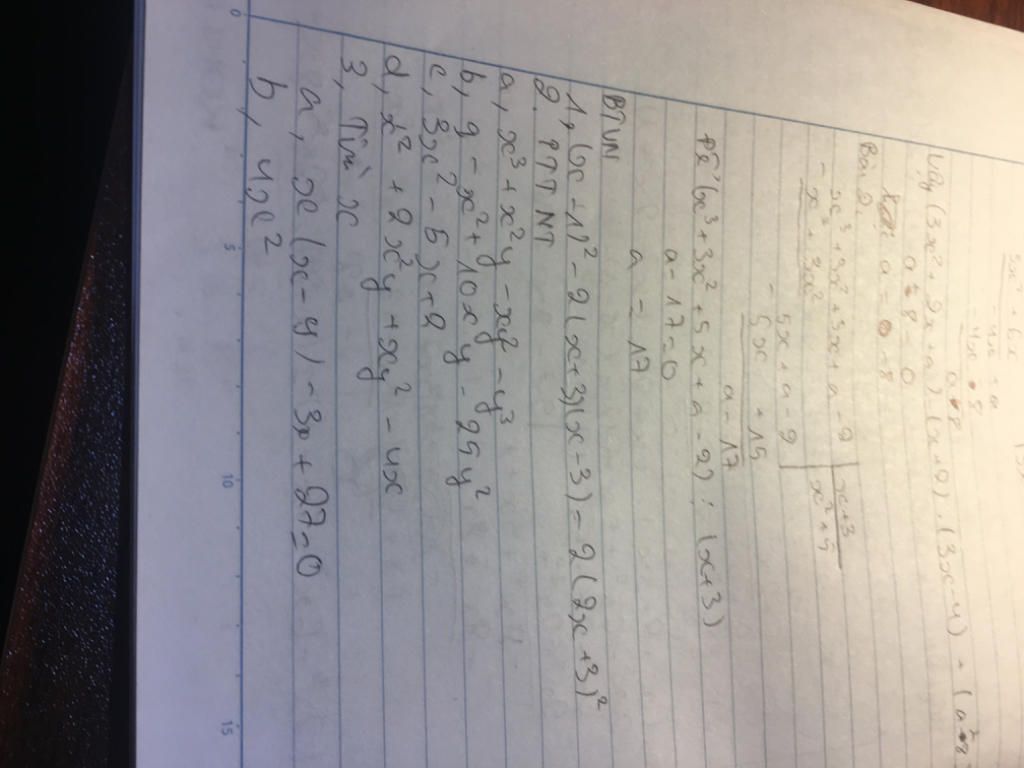 5x² + 6x
4x + a
4x + 8
a - 8
Vậy (3x² + 2x + a) : (x+2) = (3x-4) + (a-8
a - 8 = 0
a = 8
Bài 2,
x³ + 3x² + 5x + a - 2 | x+3
- x³ + 3x² | x² + 5
5x + a - 2
- 5x + 15
a - 17
Để (x³ + 3x² + 5x + a - 2) : (x+3)
a - 17 = 0
a = 17
BTVN
1, (x - 1)² - 2(x+3)(x-3) = 2(2x+3)²
2. PTTNT
a, x³ + x²y - xy² - y³
b, 9 - x² + 10xy - 25y²
c, 3x² - 5x + 2
d, x² + 2x²y + xy² - 4x
3, Tìm x
a, x(x-9) - 3x + 27 = 0
b, 4x²
0 5 10 15